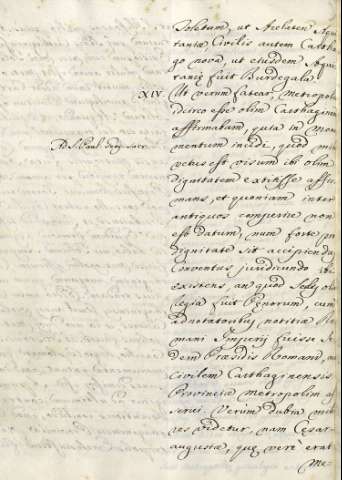 Toletum, ut Arelaten Aqui
taniæ, Civilis autem Cartha
go nova, ut ejusdem Aqui
taniæ fuit Burdegala.
XIV. Ut verum fatear, metropolim
idcirco esse olim Carthaginem
affirmabam, quia in monu
mentum incidi, quod mi
vetus est visum ibi olim
dignitatem extitisse affir
mans, et quoniam inter
antiquos comperire non
est datum, num forte pro
dignitate sit accipiendus
Conventus juridicundo ibi
existens, an quod Sedes
regia fuit Penorum, cum
adnotatoribus notitiæ Ro
mani Imperij fuisse Se
dem Præsidis Romand,
Civilem Carthaginensis
Provinciæ metropolim as
serui. Verum dubia mi
res videtur, nam Cesar-
augusta, quæ verè erat
me-